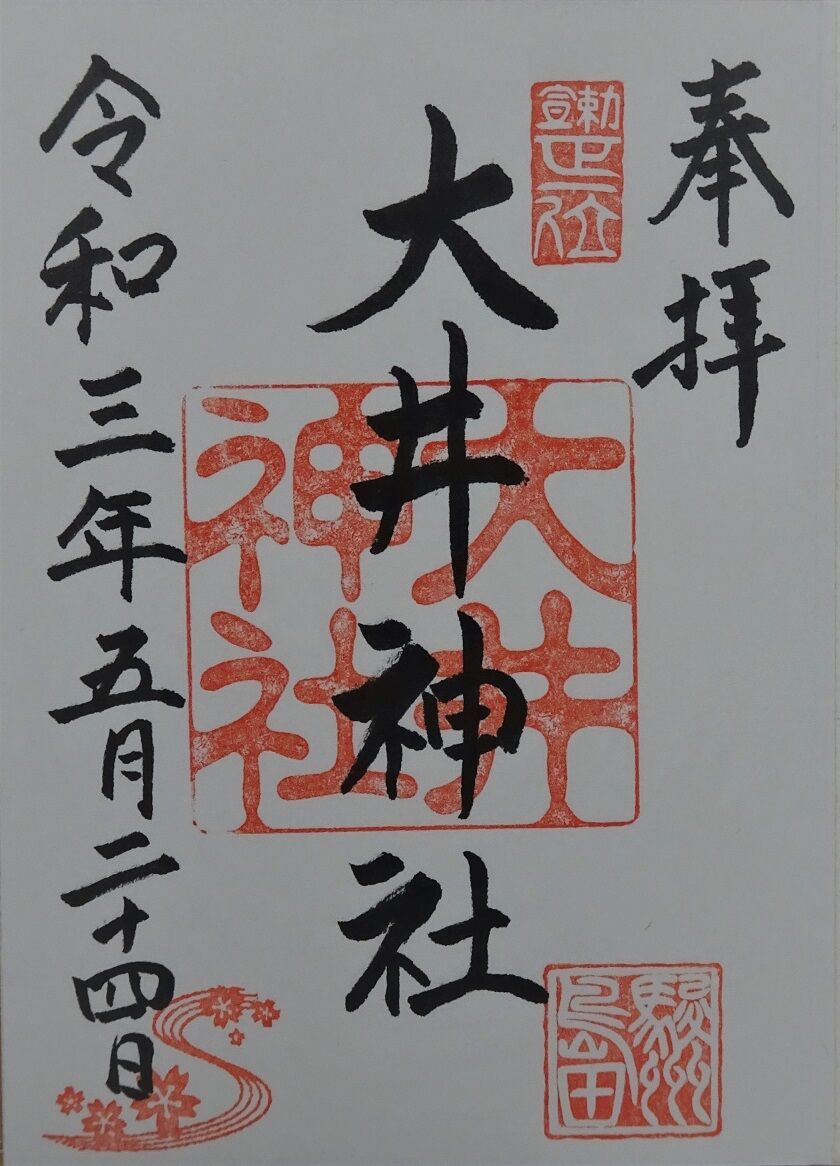 奉拝
勅宣正一位
大井神社
大井
神社
駿州
島田
令和三年五月二十四日